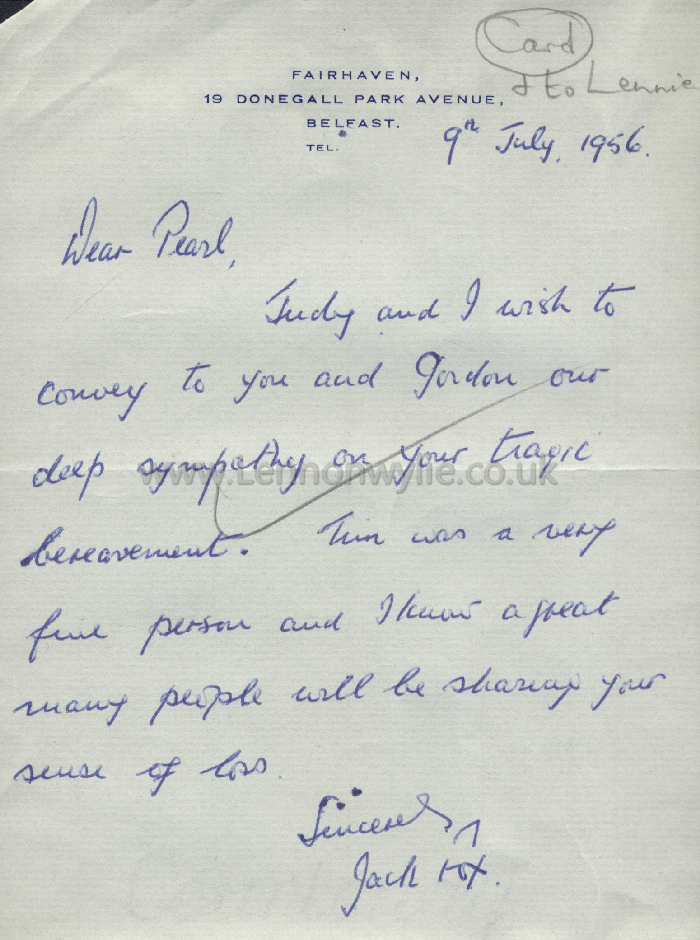 Card
& to Lennie
FAIRHAVEN,
19 DONEGALL PARK AVENUE,
BELFAST.
TEL.
9th July, 1956.
Dear Pearl,
Judy and I wish to
convey to you and Gordon our
deep sympathy on your tragic
www.Lennonwylie.co.uk
bereavement. Tim was a very
fine person and I know a great
many people will be sharing your
sense of loss.
Sincerely
Jack